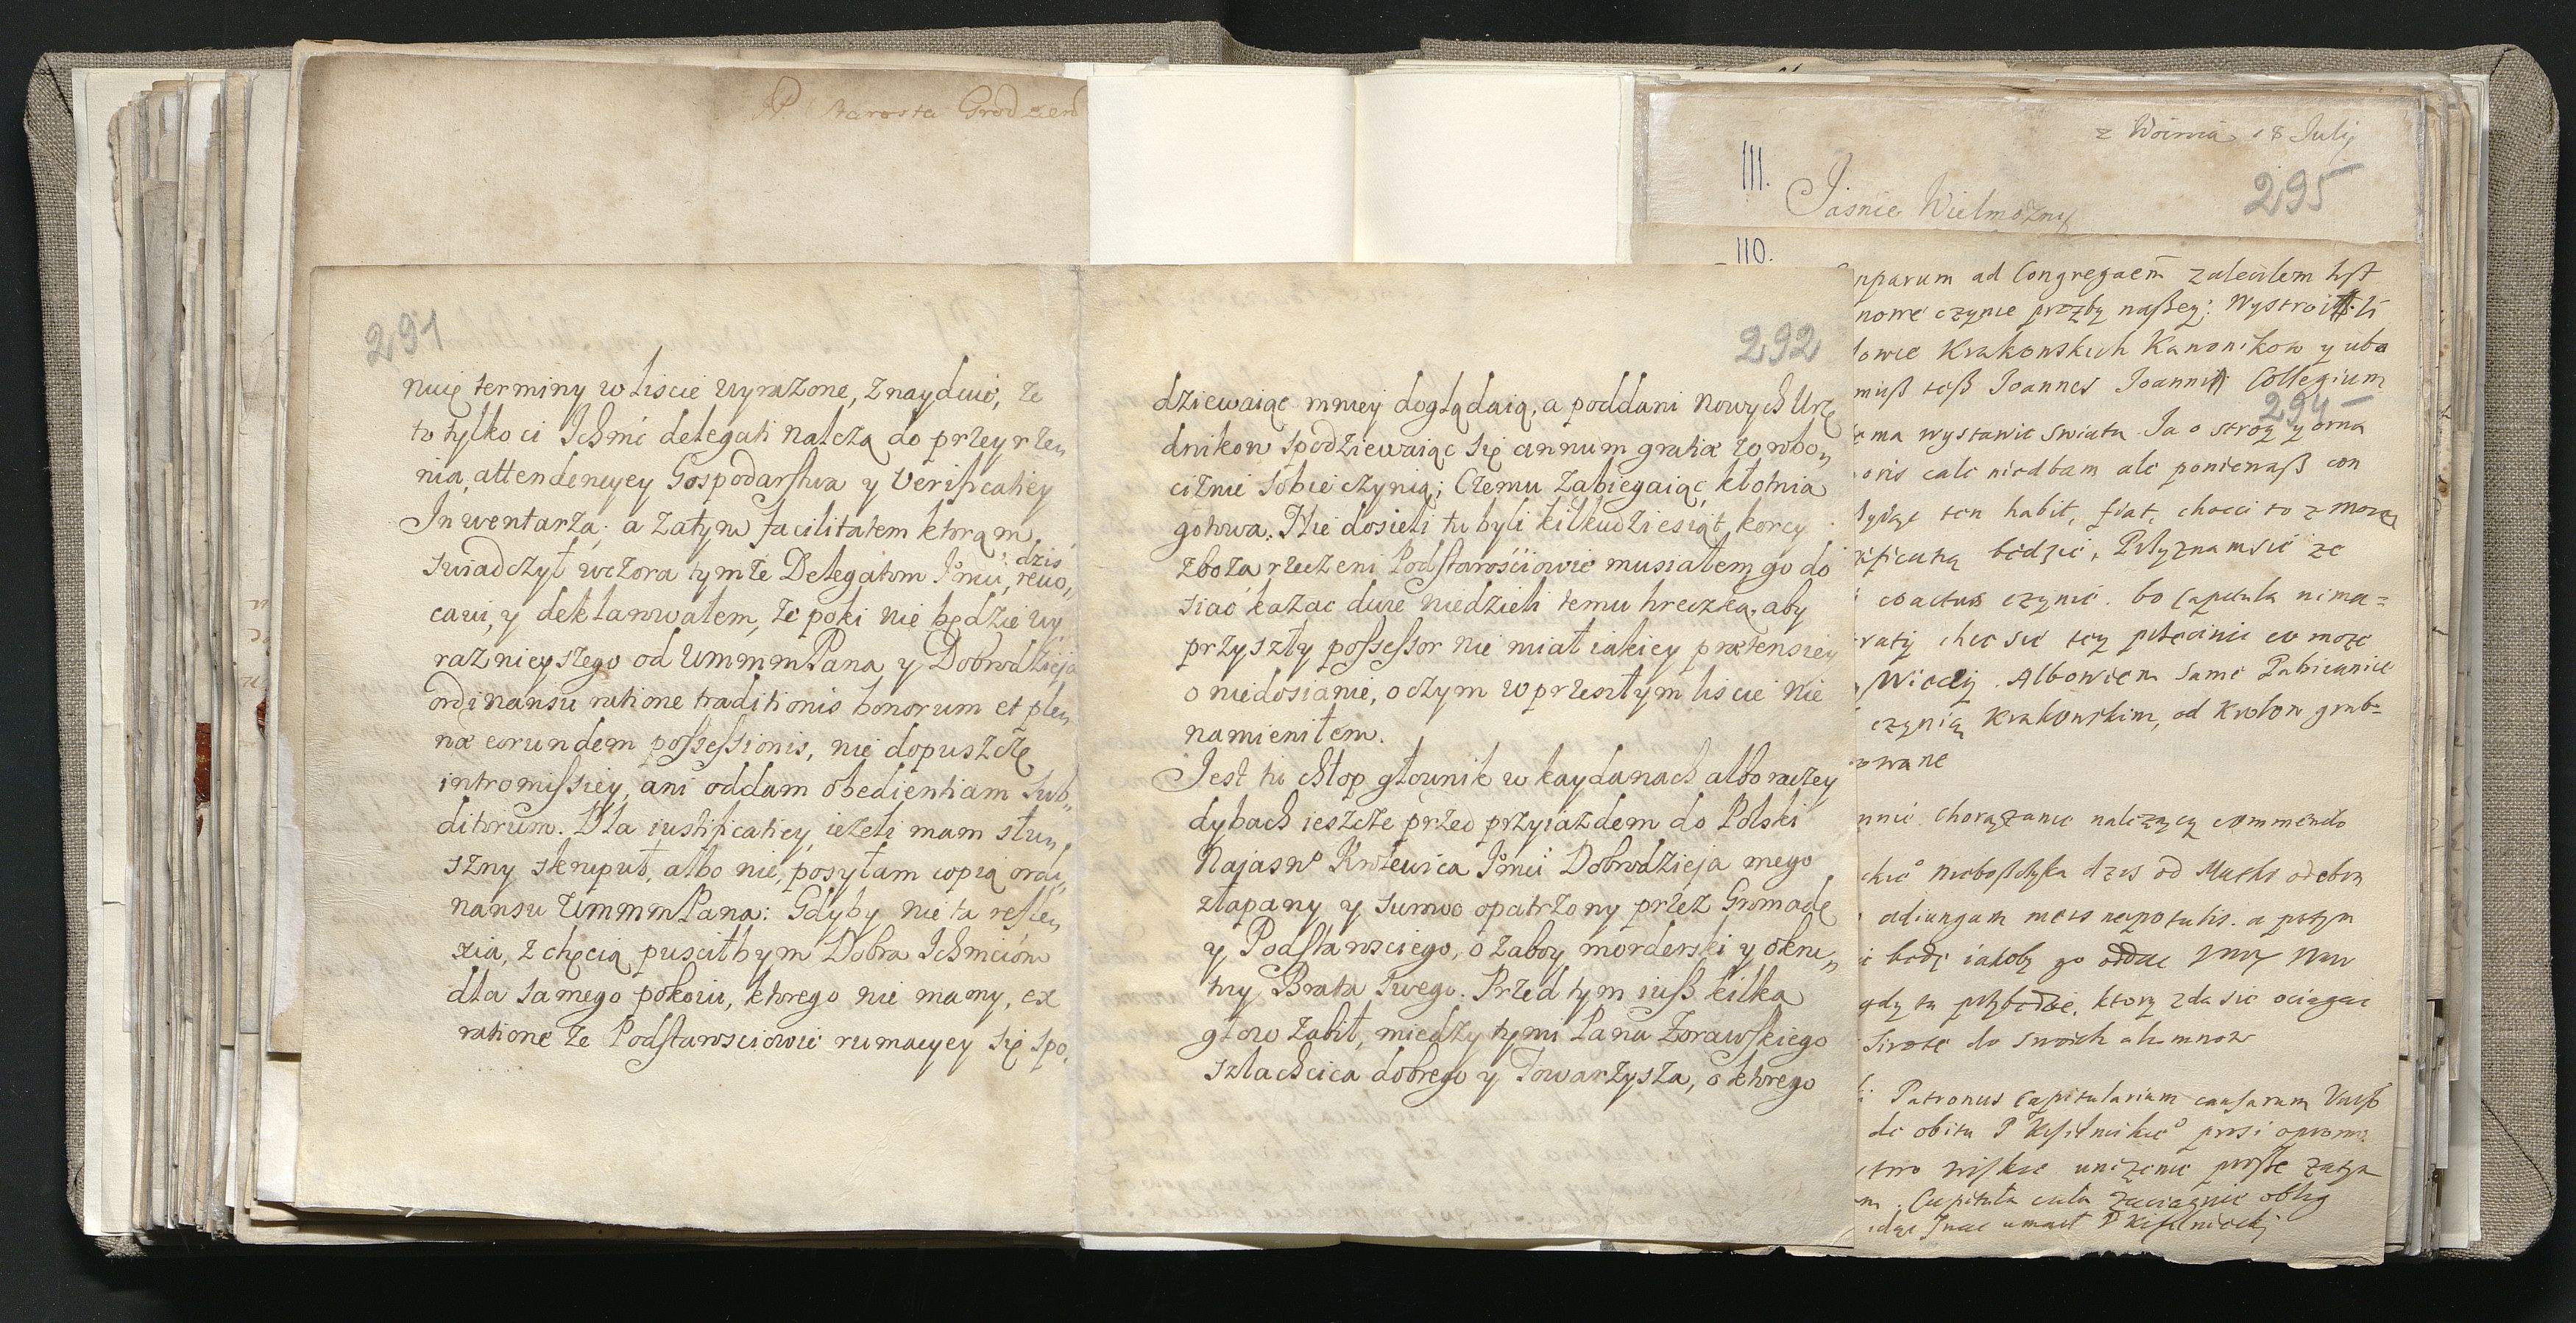 P. Starosta Grodzień
291
nuię terminy w liscie wyrazone, znayduię, że
to tylko ci Ichmć delegati należą do przeyrze„
nia, attendencyey Gospodarstwa y Verificatiey
Inwentarza; a zatym facilitatem ktorąm
swiadczył wczora tymże Delegatom Jmći, dziś revo„
cavi, y deklarowałem, że poki nie będzie wy„
raznieyszego od WmmmPana y Dobrodzieja
ordinansu ratione traditionis bonorum et ple„
næ eorundem possessionis, nie dopuszczę
intromissiey, ani oddam obedientiam sub„
ditorum. Dla iustificatiey, ieżeli mam słu„
szny skrupuł, albo nie, posyłam copią ordi„
nansu WmmmPana: Gdyby nie ta refle„
xia, z chęcią pusciłbym Dobra Ichmciom
dla samego pokoiu, ktorego nie mamy, ex
ratione że Podstarosciowie rumacyey się spo„
292
dziewaiąc mniey doglądaią, a poddani nowych Urzę„
dnikow spodziewaiąc się annum gratiæ zowbo„
ciznie sobie czynią; Czemu zabiegaiąc, kłotnia
gotowa. Nie dosieli tu byli kilkudziesiąt korcy
zboża rzeczeni Podstarościowie musiałem go do„
siać kazac dwie niedzieli temu hreczką, aby
przyszły possessor nie miał iakiey prætensiey
o niedosianie, o czym w przeszłym liscie nie
namieniłem.
Jest tu chłop głownik w kaydanach albo raczey
dybach ieszcze przed przyiazdem do Polski
Najasno Krolewica Jmći Dobrodzieja mego
złapany y surowo opatrzony przez Gromadę
y Podstarosciego, o zaboy morderski y okru„
tny Brata swego. Przed tym iuß kilka
głow zabił, miedzy tymi Pana Zorawskiego
szlachcica dobrego y Towarzysza, o ktorego
z Woinia 18 Julij
111.
295
Jasnie Wielmożny
110.
ad Congregaem zalecilem list
nowe czynie prozby naßey: Wystroi
Krakowskich Kanonikow y ubo
muß teß Joannes Joannis Collegium
294
ma wystawic swiatu. Ja o stroy y orna
oris cale niedbam ale poniewaß con
ten habit, fiat, chocci to z moią
będzie, Przyznamsie ze
coactus czynie. bo Capitula nima=
chce sie tez co moze
Wiecey. Albowiem same Pabianice
czynią Krakowskim, od Krolow grub=
owane
chorązanie należący commendo
dzis od
adiungam meis a potym
bedę iakoby go oddac
gdy tu przybędzie, ktory zda sie ociągac
do swoich alumnow
Patronus Capitularium causarum Varß
de obitu P prosi o promo
uniżenie proße zatym
Capituła cała zaciągnie oblig
umarł P Kisielnicki